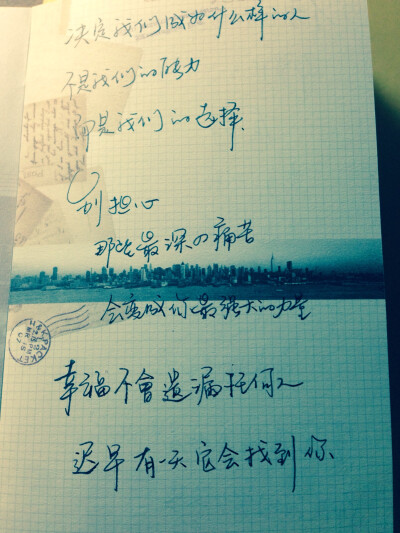 决定我们成为什么样的人
不是我们的能力
而是我们的选择
别担心
那些最深的痛苦
会变成你最强大的力量
幸福不會遺漏任何人
迟早有一天它会找到你
PACKET